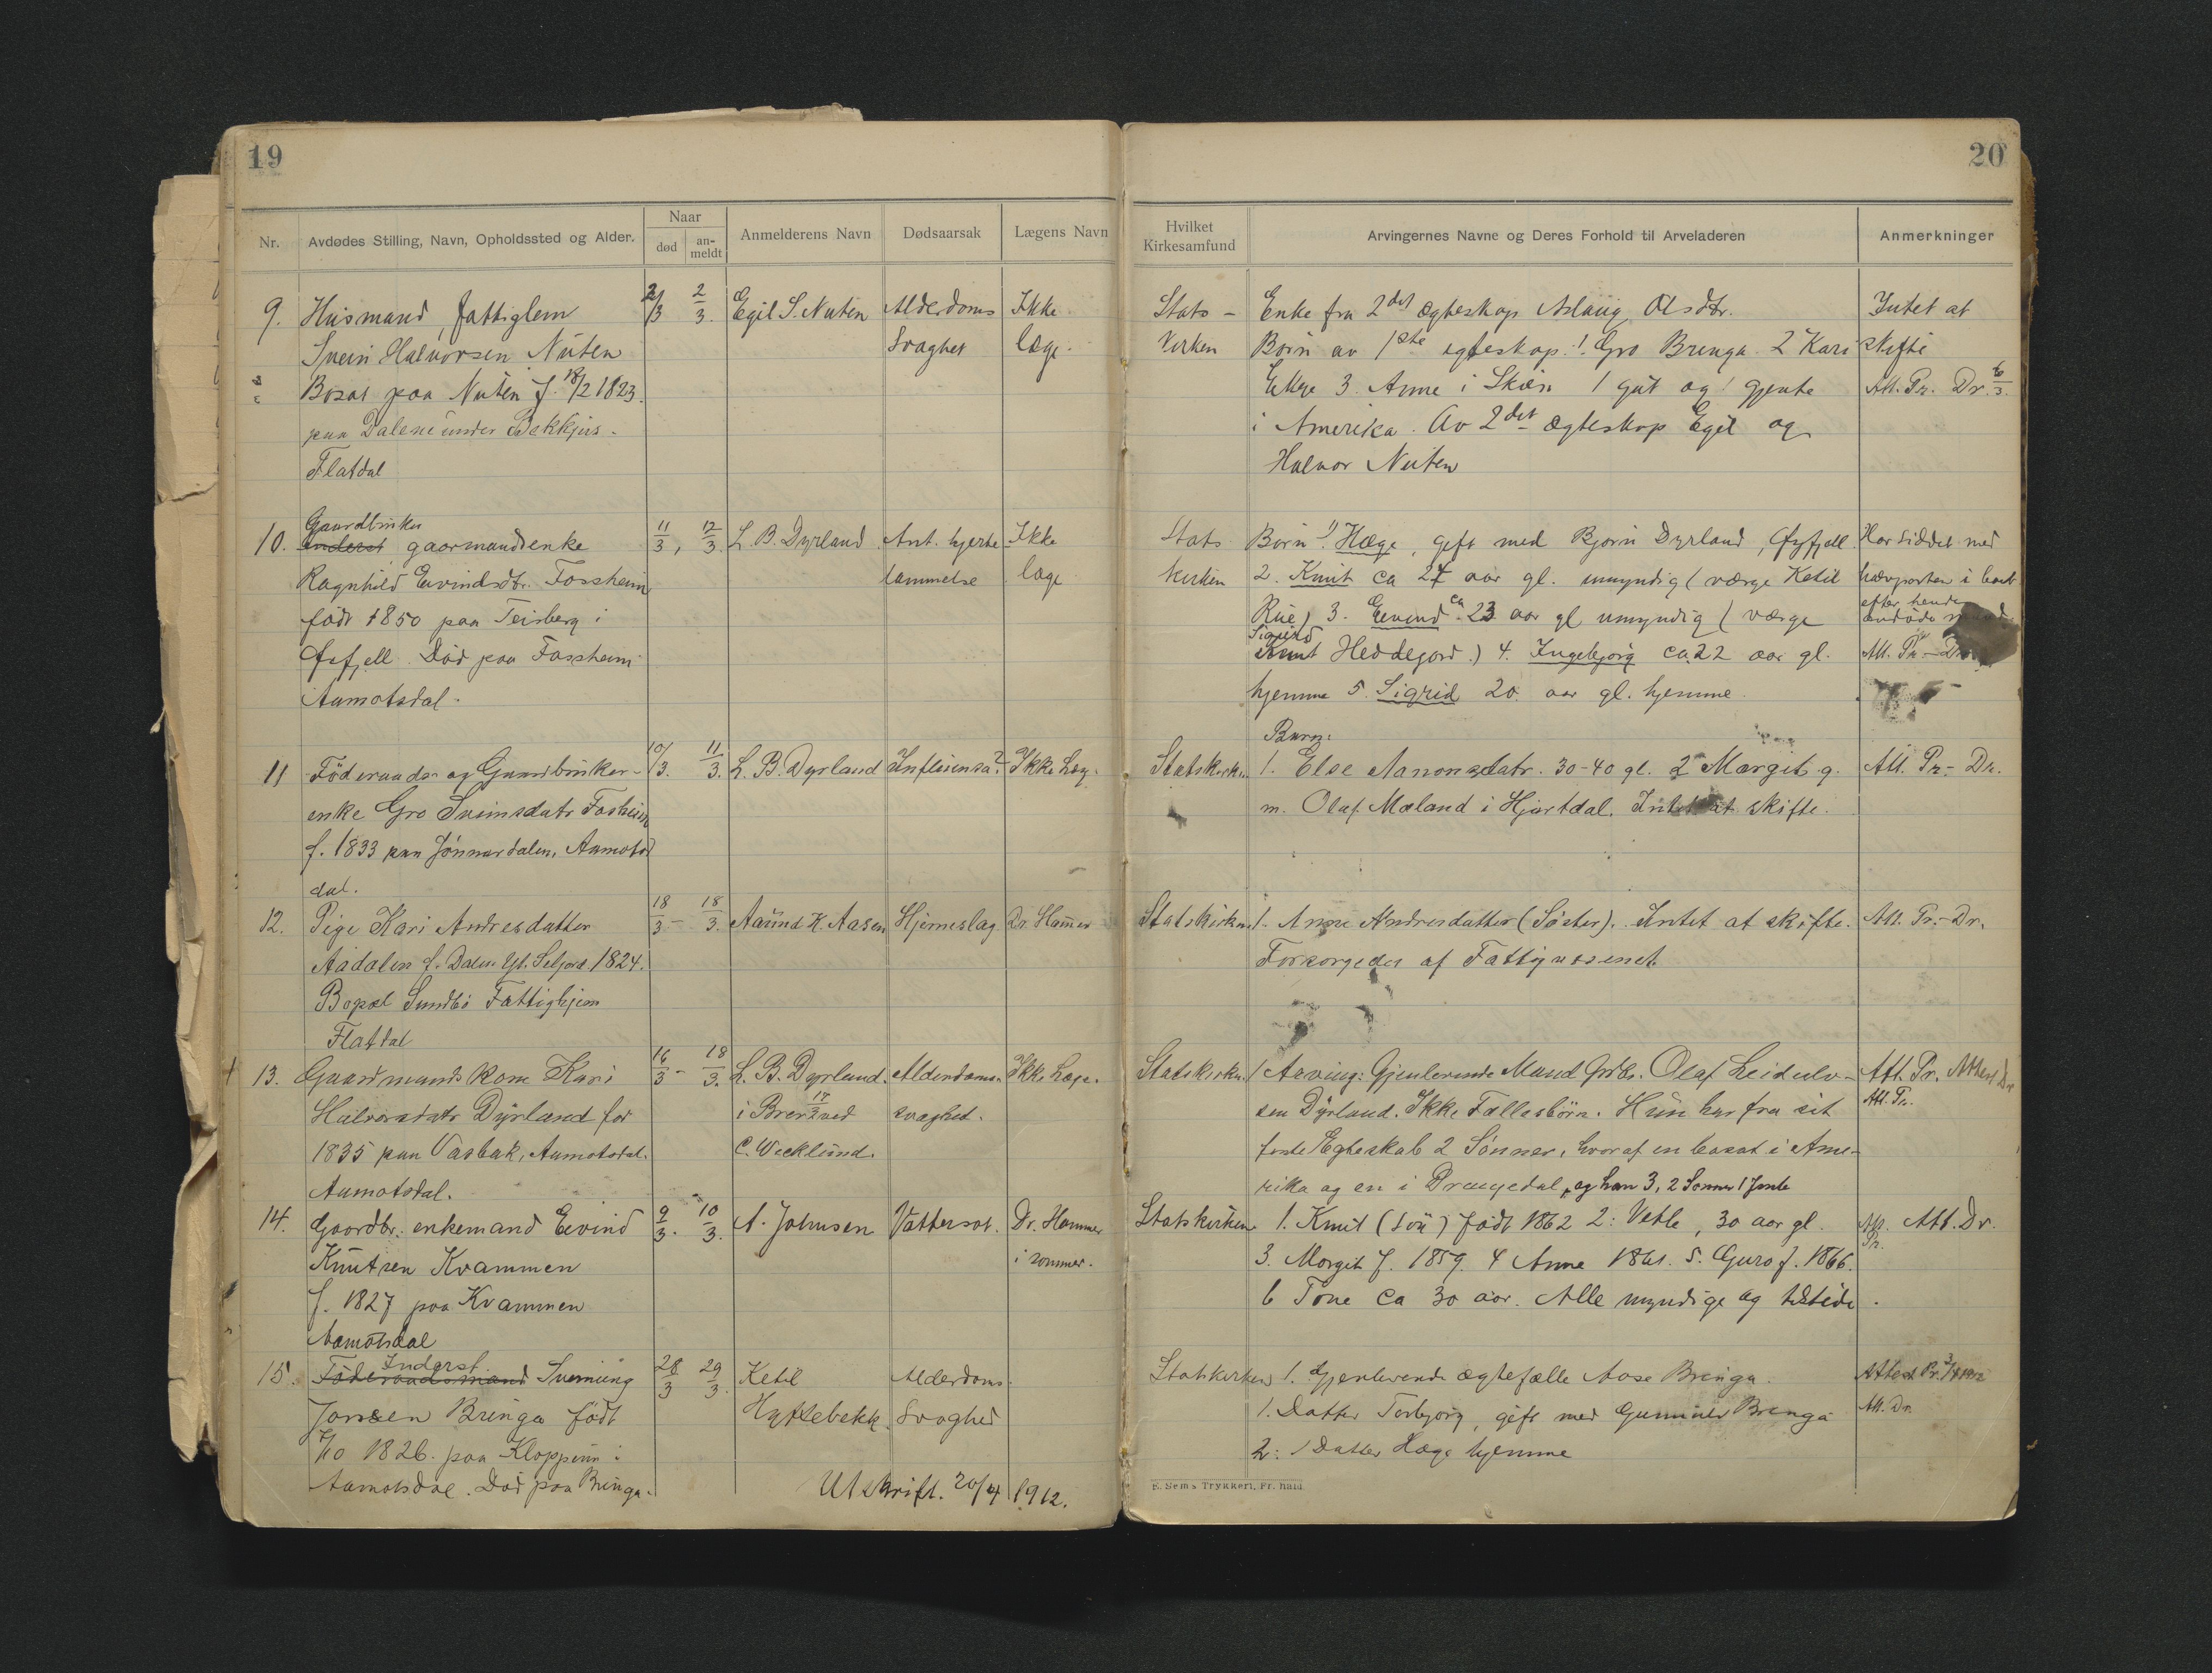 19
Nr.
Avdødes Stilling, Navn, Opholdssted og Alder.
Naar
død
an-
meldt
Anmelderens Navn
Dødsaarsak
Lægens Navn
9. Husmand, fattiglem 2/3 2/3. Egil S. Nuten Alderdoms Ikke
Svein Halvorsen Nuten svaghet læge.
Bosat paa Nuten f. 18/2 1823.
paa Dalene under Bekkhus
Flatdal
Gaardbruker
10. Inderst gaarmandsenke 11/3, 12/3. L. B. Dyrland Ant. hjerte Ikke
Ragnhild Eivindsdtr. Fossheim lammelse læge
født 1850 paa Teisberg i
Øifjell. Død paa Fossheim
Aamotsdal.
11 Föderaads- og Gaardbruker- 10/3. 11/3. L. B. Dyrland Influensa? Ikke Læg.
enke Gro Sveinsdatr Fosheim
f. 1833 paa Jönnardalen, Aamots
dal.
12. Pige Kari Andresdatter 18/3 - 18/3. Aanund K. Aasen Hjerneslag Dr Hamer
Aadalen f. Dalen Seljord 1824.
Bopæl Sundbö Fattighjem
Flatdal
13. Gaardmands Kone Kari 16/3 - 18/3. L. B. Dyrland. Alderdoms- Ikke Læge.
Halvorsdatr Dyrland fød i Brev 17/3 ved svaghed.
1835 paa Vasbæk, Aamotsdal. C. Wecklund.
Aamotsdal.
14. Gaardbr. enkemand Eivind 9/3. 10/3. A. Johnsen Vattersot. Dr. Hammer
Knutsen Kvammen i sommer.
f. 1827 paa Kvammen
Aamotsdal
Inderst
15. Föderaadsmand Sveinung 28/3 29/3 Ketil Alderdoms
Jonsen Bringa født Hyttebekk svaghed
7/10 1826. paa Kloppen i
Aamotsdal. Død paa Bringa.
Utskrift. 20/4 1912.
20
Hvilket
Kirkesamfund
Arvingernes Navne og Deres Forhold til Arveladeren
Anmerkninger
Stats- Enke fra 2det ægteskap Aslaug Olsdtr. Intet at
kirken Børn av 1ste egteskap. 1. Gro Bringa 2 Kari skifte
3. Anne i Skien 1 gut og 1 gjente Att. Pr. Dr. 6/3.
i Amerika. Av 2det ægteskap Egil og
Halvor Nuten
Stats Børn 1) Hæge, gift med Bjørn Dyrland, Øyfjell. Har siddet med
kirken 2. Knut ca 27 aar gl. umyndig (værge Ketil
Rue) 3. Eivind ca 23 aar gl umyndig (værge efter hendes
Sigurd
Knut Heddejord.) 4. Ingebjørg ca 22 aar gl. Att. Pr.
hjemme 5. Sigrid 20 aar gl. hjemme
Barn:
Statskirken 1. Else Aanonsdatr. 30-40 gl. 2 Margit g. Att. Pr.- Dr.
m. Olaf Mæland i Hjartdal. Intet at skifte.
Statskirken. 1. Anne Andresdatter (Søster). Intet at skifte. Att. Pr.- Dr.
Forsørgedes af Fattigvæsenet.
Statskirken. 1 Arving: Gjenlevende Mand Grdbr. Olaf Leidulv- Att. Pr. Attest Dr
sen Dyrland. Ikke Fællesbörn. Hun har fra sit Att. Pr.
første Egteskab 2 Sönner, hvoraf en bosat i Ame-
rika og en i Drangedal, og han 3, 2 Sønner 1 Jente
Statskirken 1. Knut (Löu) født 1862 2: Vetle, 30 aar gl. Att. Dr.
3. Margit f. 1859. 4 Anne 1861. 5. Guro f. 1866.
6 Tone ca 30 aar. Alle myndige og tilstede.
Statskirken 1. Gjenlevende ægtefælle Aase Bringa. Attest Pr. 3/4 1912
1. Datter Torbjørg, gift med Gunnuv Bringa Att. Dr.
2: 1 Datter Hæge hjemme
E. Sems Trykkeri, Fr.hald